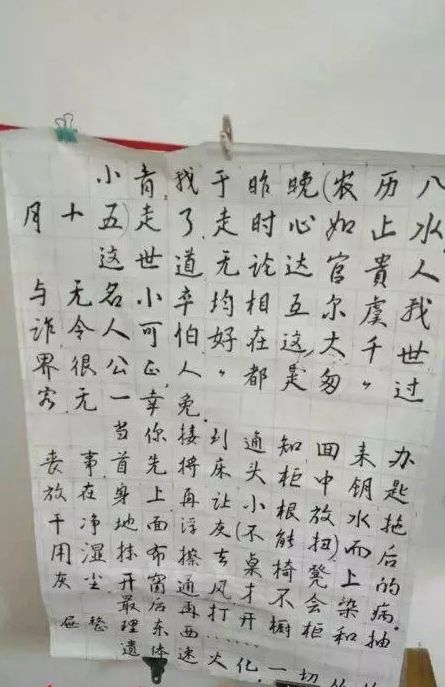 小育,我于昨晚(农历八
月十五)走了,走时心如止水
这世道无论达官贵人
与无名小卒均相互尔虞我
诈令人可怕,好在这大千世
界很公正,人〃都是匆〃过
客无一幸免。
当你接到通知回来办
丧事首先将床头柜中钥匙
放在身上再让小根放水拖
干净地面浮灰(不能扭)而后
用湿抹布擦去桌椅凳上的
灰尘开窗通风才不会染病。
最后再打开橱柜和抽
屉整理东西……
遗体速火化,一切